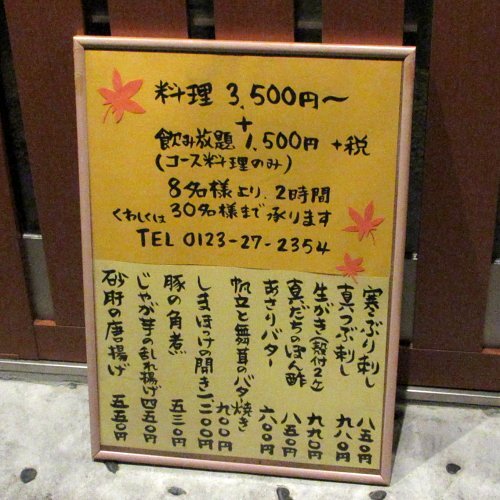 料理 3,500円〜
+
飲み放題 1,500円 +税
(コース料理のみ)
8名様より、2時間
くわしくは 30名様まで承ります
TEL 0123-27-2354
寒ぶり刺し 八五〇円
真つぶ刺し 九八〇円
生がき(殻付2ヶ) 九九〇円
真だちのぽん酢 八五〇円
あさりバター 六〇〇円
帆立と舞茸のバタ焼き 九〇〇円
しまほっけの開き 一二〇〇円
豚の角煮 五三〇円
じゃが芋の乱れ揚げ 四五〇円
砂肝の唐揚げ 五五〇円